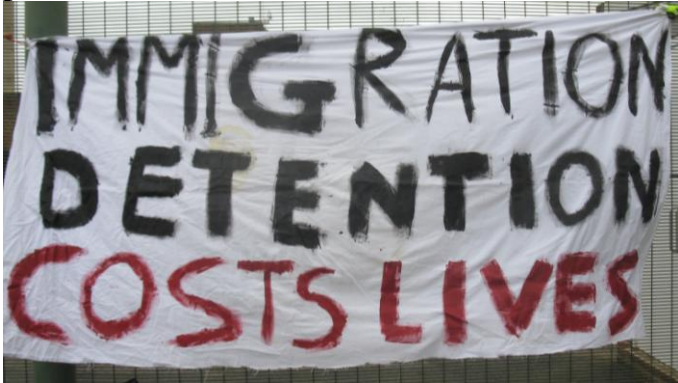 IMMIGRATION
DETENTION
COSTS LIVES